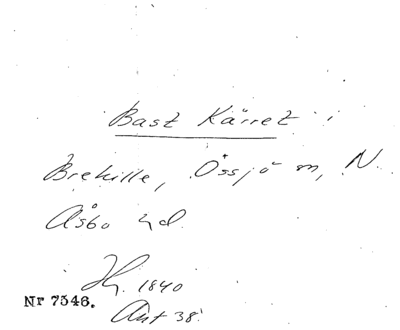 Bast Kärret i
Brehille, Össjö sn, N.
Åsbo hd.
Hy. 1840
Nr 7546.
Ant 38.